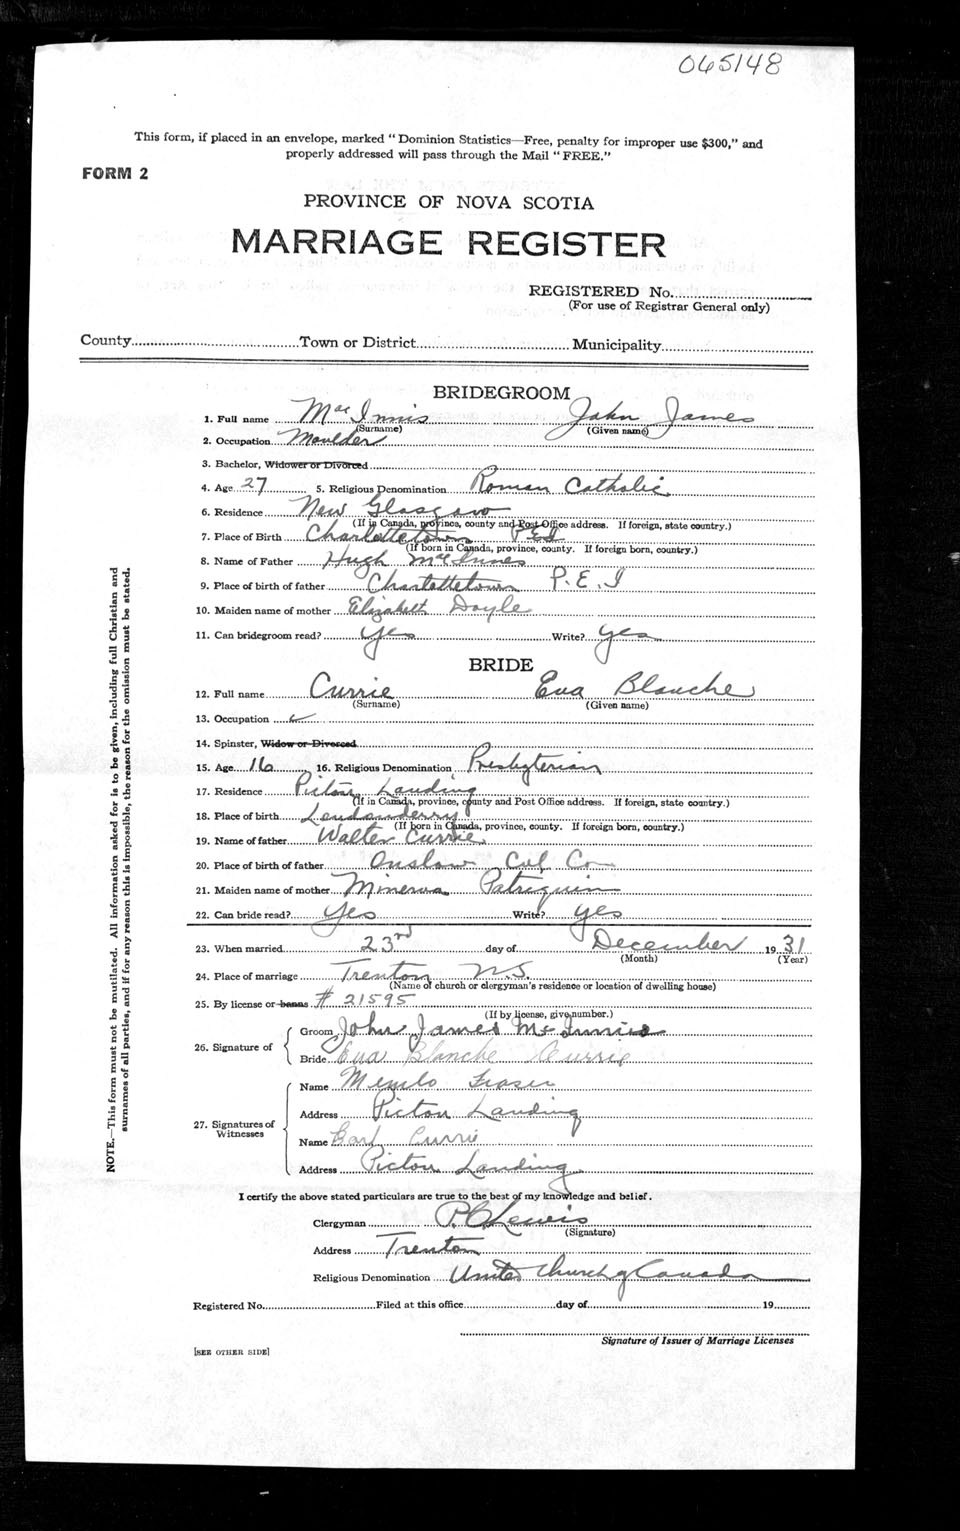 065148
This form, if placed in an envelope, marked "Dominion Statistics—Free, penalty for improper use $300," and
properly addressed will pass through the Mail "FREE."
FORM 2
PROVINCE OF NOVA SCOTIA
MARRIAGE REGISTER
REGISTERED No.
(For use of Registrar General only)
County Town or District Municipality
BRIDEGROOM
1. Full name Mac Innis John James
(Surname) (Given name)
2. Occupation Moulder
3. Bachelor, Widower or Divorced
4. Age 27 5. Religious Denomination Roman Catholic
6. Residence New Glasgow
(If in Canada, province, county and Post Office address. If foreign, state country.)
7. Place of Birth Charlottetown PEI
(If born in Canada, province, county. If foreign born, country.)
8. Name of Father Hugh MacInnes
9. Place of birth of father Charlottetown P.E.I
10. Maiden name of mother Elizabeth Doyle
11. Can bridegroom read? yes Write? yes
BRIDE
12. Full name Currie Eva Blanche
(Surname) (Given name)
13. Occupation
14. Spinster, Widow or Divorced
15. Age 16 16. Religious Denomination Presbyterian
17. Residence Picton Landing
(If in Canada, province, county and Post Office address. If foreign, state country.)
18. Place of birth Londonderry
(If born in Canada, province, county. If foreign born, country.)
19. Name of father Walter Currie
20. Place of birth of father Onslow Col Co
21. Maiden name of mother Minerva Patriquin
22. Can bride read? Yes Write? yes
23. When married 23rd day of December 1931
(Month) (Year)
24. Place of marriage Trenton N.S.
(Name of church or clergyman's residence or location of dwelling house)
25. By license or banns # 21595
(If by license, give number.)
26. Signature of
Groom John James McInnis
Bride Eva Blanche Currie
27. Signatures of Witnesses
Name Fraser
Address Picton Landing
Name Currie
Address Picton Landing
I certify the above stated particulars are true to the best of my knowledge and belief.
Clergyman Lewis
(Signature)
Address Trenton
Religious Denomination United Church of Canada
Registered No. Filed at this office day of 19
Signature of Issuer of Marriage Licenses
[SEE OTHER SIDE]
NOTE.—This form must not be mutilated. All information asked for is to be given, including full Christian and
surnames of all parties, and if for any reason this is impossible, the reason for the omission must be stated.